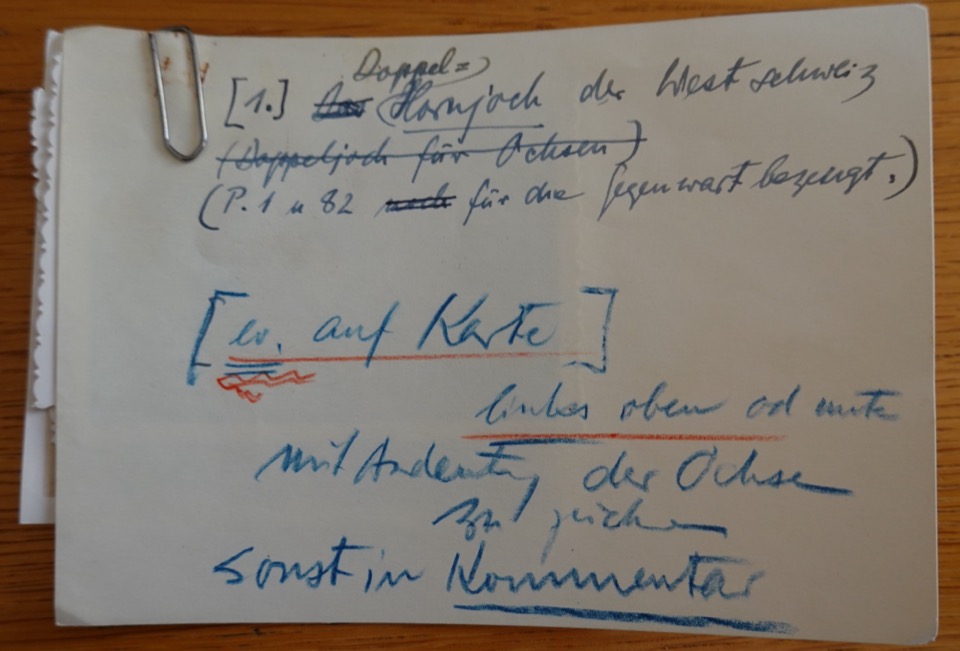 Doppel=
[1.] Das Hornjoch der Westschweiz
(Doppeljoch für Ochsen)
(P. 1 u 82 noch für die Gegenwart bezeugt.)
[ev. auf Karte]
links oben od unte
mit Andeutg der Ochse
zu zeichen
sonst in Kommentar